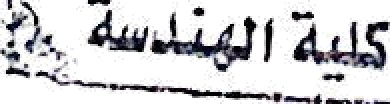 كلية الهندسة